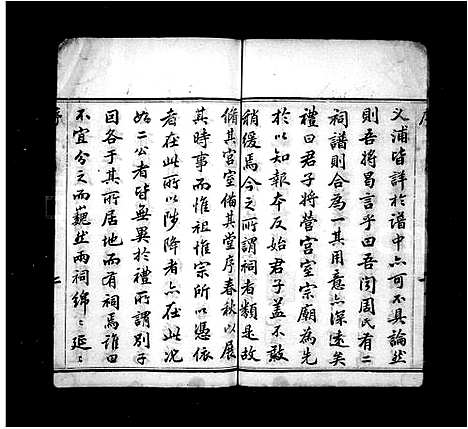 序
乂浦皆詳於譜中六可不具論然
則吾將曷言乎曰吾閔周氏有二
祠譜則合為一其用意六深遠矣
禮曰君子將營宮室宗廟為先
於以知報本反始君子蓋不敢
稍緩焉今之所謂祠者類是故
脩其宮室備其堂序春秋以展
其時事而惟祖惟宗所以憑依
者在此所以陟降者六在此況
如二公者皆無異於禮所謂別子
因各于其所居地而有祠焉誰曰
不宜分之而巍然兩祠綿〻延〻
序
二